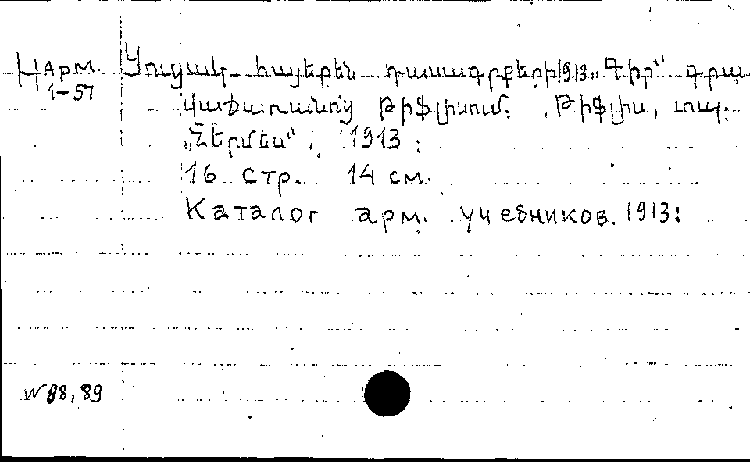 Арм. Ցուցակ հայերեն դասագրքերի 1913 „Գիր“ գրա
1-57 վաճառանոց Թիֆլիսում. Թիֆլիս, տպ.
„Հերմես“, 1913:
16 стр. 14 см.
Каталог арм. учебников. 1913:
N 88, 89